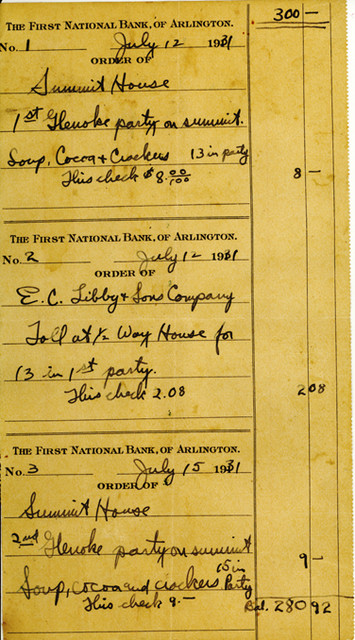 300 —
THE FIRST NATIONAL BANK, OF ARLINGTON.
No. 1 July 12 1931
ORDER OF
Summit House
1st Glenoke party on summit.
Soup, Cocoa & Crackers 13 in party
This check $8.00/100 8 —
THE FIRST NATIONAL BANK, OF ARLINGTON.
No. 2 July 12 1931
ORDER OF
E. C. Libby & Sons Company
Toll at 1/2 Way House for
13 in 1st party.
This check 2.08 2 08
THE FIRST NATIONAL BANK, OF ARLINGTON.
No. 3 July 15 1931
ORDER OF
Summit House
2nd Glenoke party on summit 9 —
Soup, cocoa and crackers 15 in Party
This check 9.— Bal. 280 92